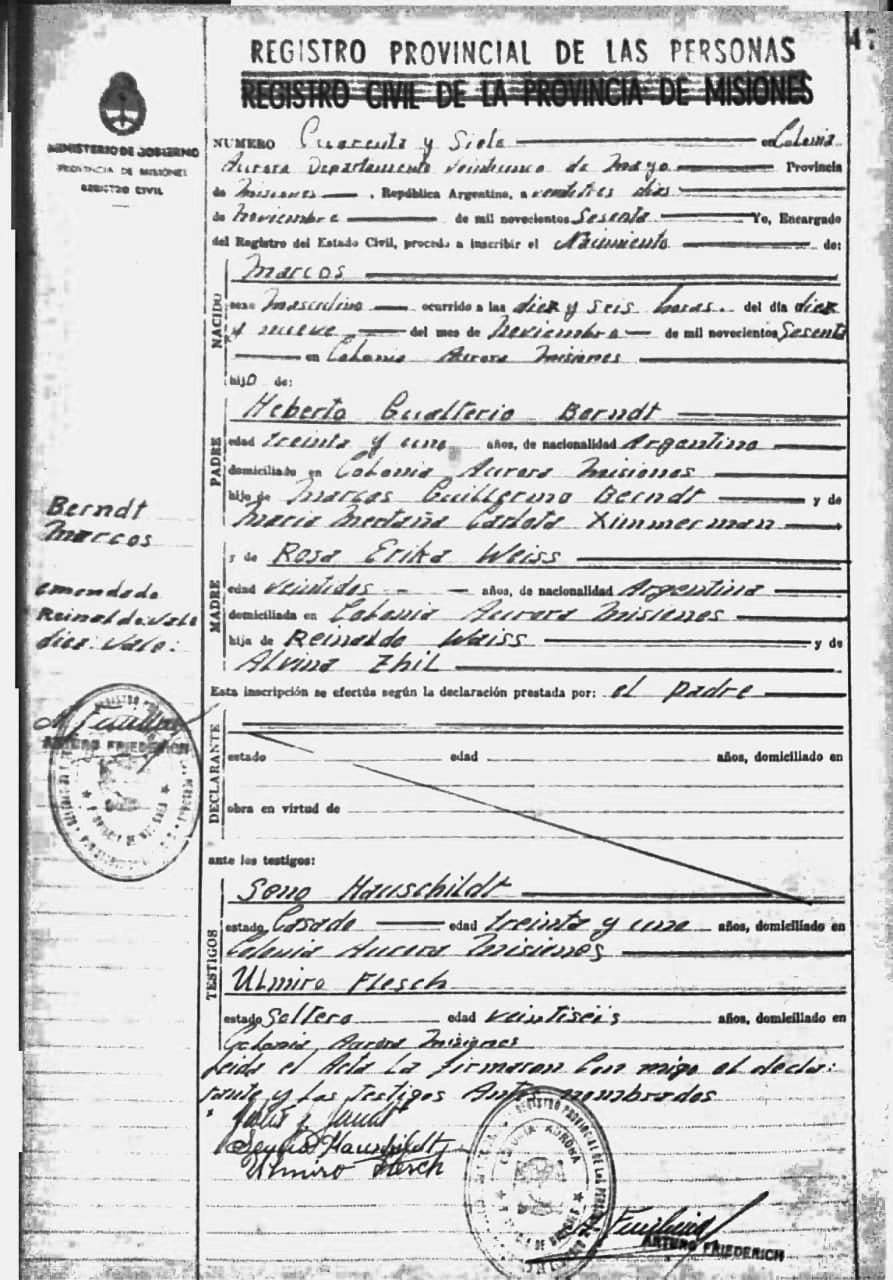 47
REGISTRO PROVINCIAL DE LAS PERSONAS
REGISTRO CIVIL DE LA PROVINCIA DE MISIONES
MINISTERIO DE GOBIERNO
PROVINCIA DE MISIONES
REGISTRO CIVIL
NUMERO Cuarenta y Siete en Colonia
Aurora Departamento Veinticinco de Mayo Provincia
de Misiones , República Argentina, a veintitres dias
de Noviembre de mil novecientos Sesenta Yo, Encargado
del Registro del Estado Civil, procedo a inscribir el Nacimiento de:
NACIDO
Marcos
sexo Masculino ocurrido a las diez y seis horas. del día diez
y nueve del mes de Noviembre de mil novecientos Sesenta
en Colonia Aurora Misiones
hijo de:
PADRE
Heberto Gualterio Berndt
edad treinta y uno años, de nacionalidad Argentino
domiciliado en Colonia Aurora Misiones
hijo de Marcos Guillermo Berndt y de
Maria Carlota Zimmerman
MADRE
y de Rosa Erika Weiss
edad veintidos años, de nacionalidad Argentina
domiciliada en Colonia Aurora Misiones
hija de Reinaldo Weiss y de
Alvina Zhil
Berndt
Marcos
emendado
Reinaldo: Vale
diez: Vale:
Esta inscripción se efectúa según la declaración prestada por: el padre
ARTURO FRIEDERICH
DECLARANTE
estado edad años, domiciliado en
obra en virtud de
ante los testigos:
TESTIGOS
Seno Hauschildt
estado Casado edad treinta y uno años, domiciliado en
Colonia Aurora Misiones
Ulmiro Flesch
estado Soltero edad veintiseis años, domiciliado en
Colonia Aurora Misiones
Leida el Acta La firmaron Con migo el decla:
rante y Los Testigos Antes nombrados
Hauschildt
Ulmiro Flesch
REGISTRO PROVINCIAL DE LAS PERSONAS
COLONIA AURORA
ARTURO FRIEDERICH